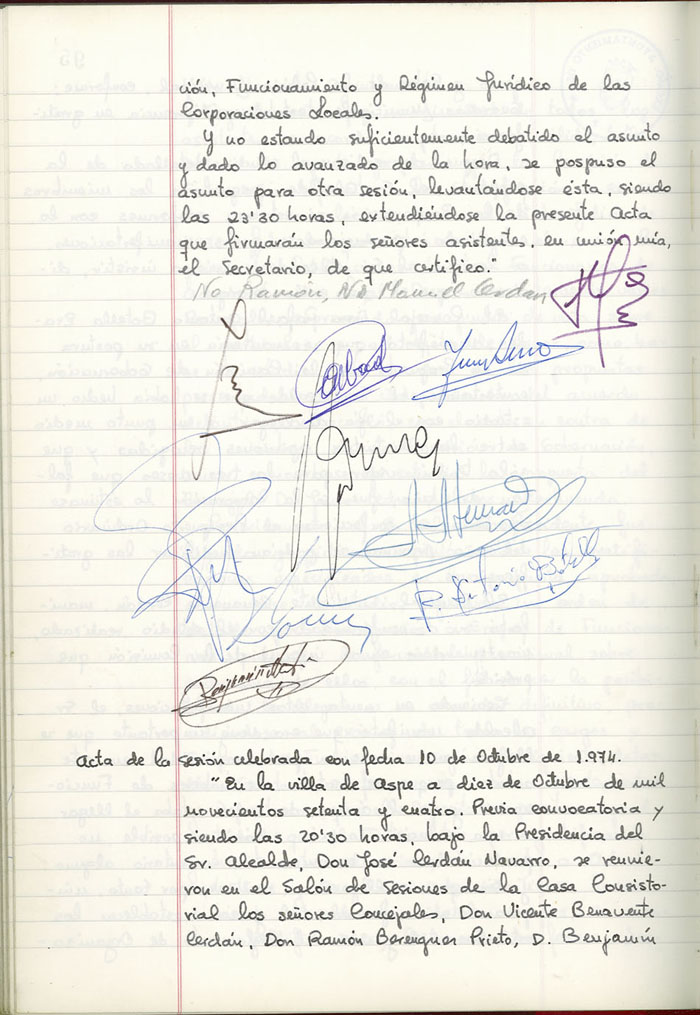 ción, Funcionamiento y Régimen Jurídico de las
Corporaciones Locales.
Y no estando suficientemente debatido el asunto
y dado lo avanzado de la hora, se pospuso el
asunto para otra sesión, levantándose ésta, siendo
las 23'30 horas, extendiéndose la presente Acta
que firmarán los señores asistentes, en unión mía,
el Secretario, de que certifico."
No Ramón, No Manuel Cerdan
R. Antonio Botella
Benjamín
Acta de la sesión celebrada con fecha 10 de Octubre de 1.974.
"En la villa de Aspe a diez de Octubre de mil
novecientos setenta y cuatro. Previa convocatoria y
siendo las 20'30 horas, bajo la Presidencia del
Sr. Alcalde, Don José Cerdán Navarro, se reunie-
ron en el Salón de Sesiones de la Casa Consisto-
rial los señores Concejales, Don Vicente Benavente
Cerdán, Don Ramón Berenguer Prieto, D. Benjamín